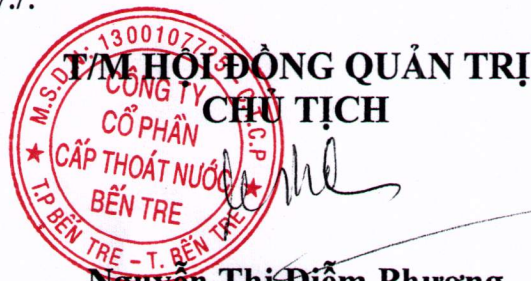 ./.
T/M HỘI ĐỒNG QUẢN TRỊ
CHỦ TỊCH
M.S.D.N: 1300107725 - C.T.C.P
CÔNG TY
CỔ PHẦN
CẤP THOÁT NƯỚC
BẾN TRE
T.P BẾN TRE - T. BẾN TRE
Nguyễn Thị Diễm Phượng